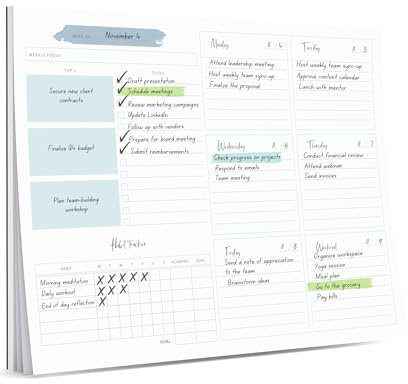 WEEK OF: November 4
WEEKLY FOCUS:
TOP 3
Secure new client
contracts
Finalize Q4 budget
Plan team-building
workshop
TO DO
Draft presentation
Schedule meetings
Review marketing campaigns
Update LinkedIn
Follow up with vendors
Prepare for board meeting
Submit reimbursements
Monday 11 / 4
Attend leadership meeting
Host weekly team sync-up
Finalize the proposal
Tuesday 11 / 5
Host weekly team sync-up
Approve content calendar
Lunch with mentor
Wednesday 11 / 6
Check progress on projects
Respond to emails
Team meeting
Thursday 11 / 7
Conduct financial review
Attend webinar
Send invoices
Habit Tracker
HABIT M T W T F S S ACHIEVED GOAL
Morning meditation X X X X X
Daily workout X X X
End of day reflection X
TOTAL
Friday 11 / 8
Send a note of appreciation
to the team
Brainstorm ideas
Weekend 11 / 9
Organize workspace
Yoga session
Meal plan
Go to the grocery
Pay bills